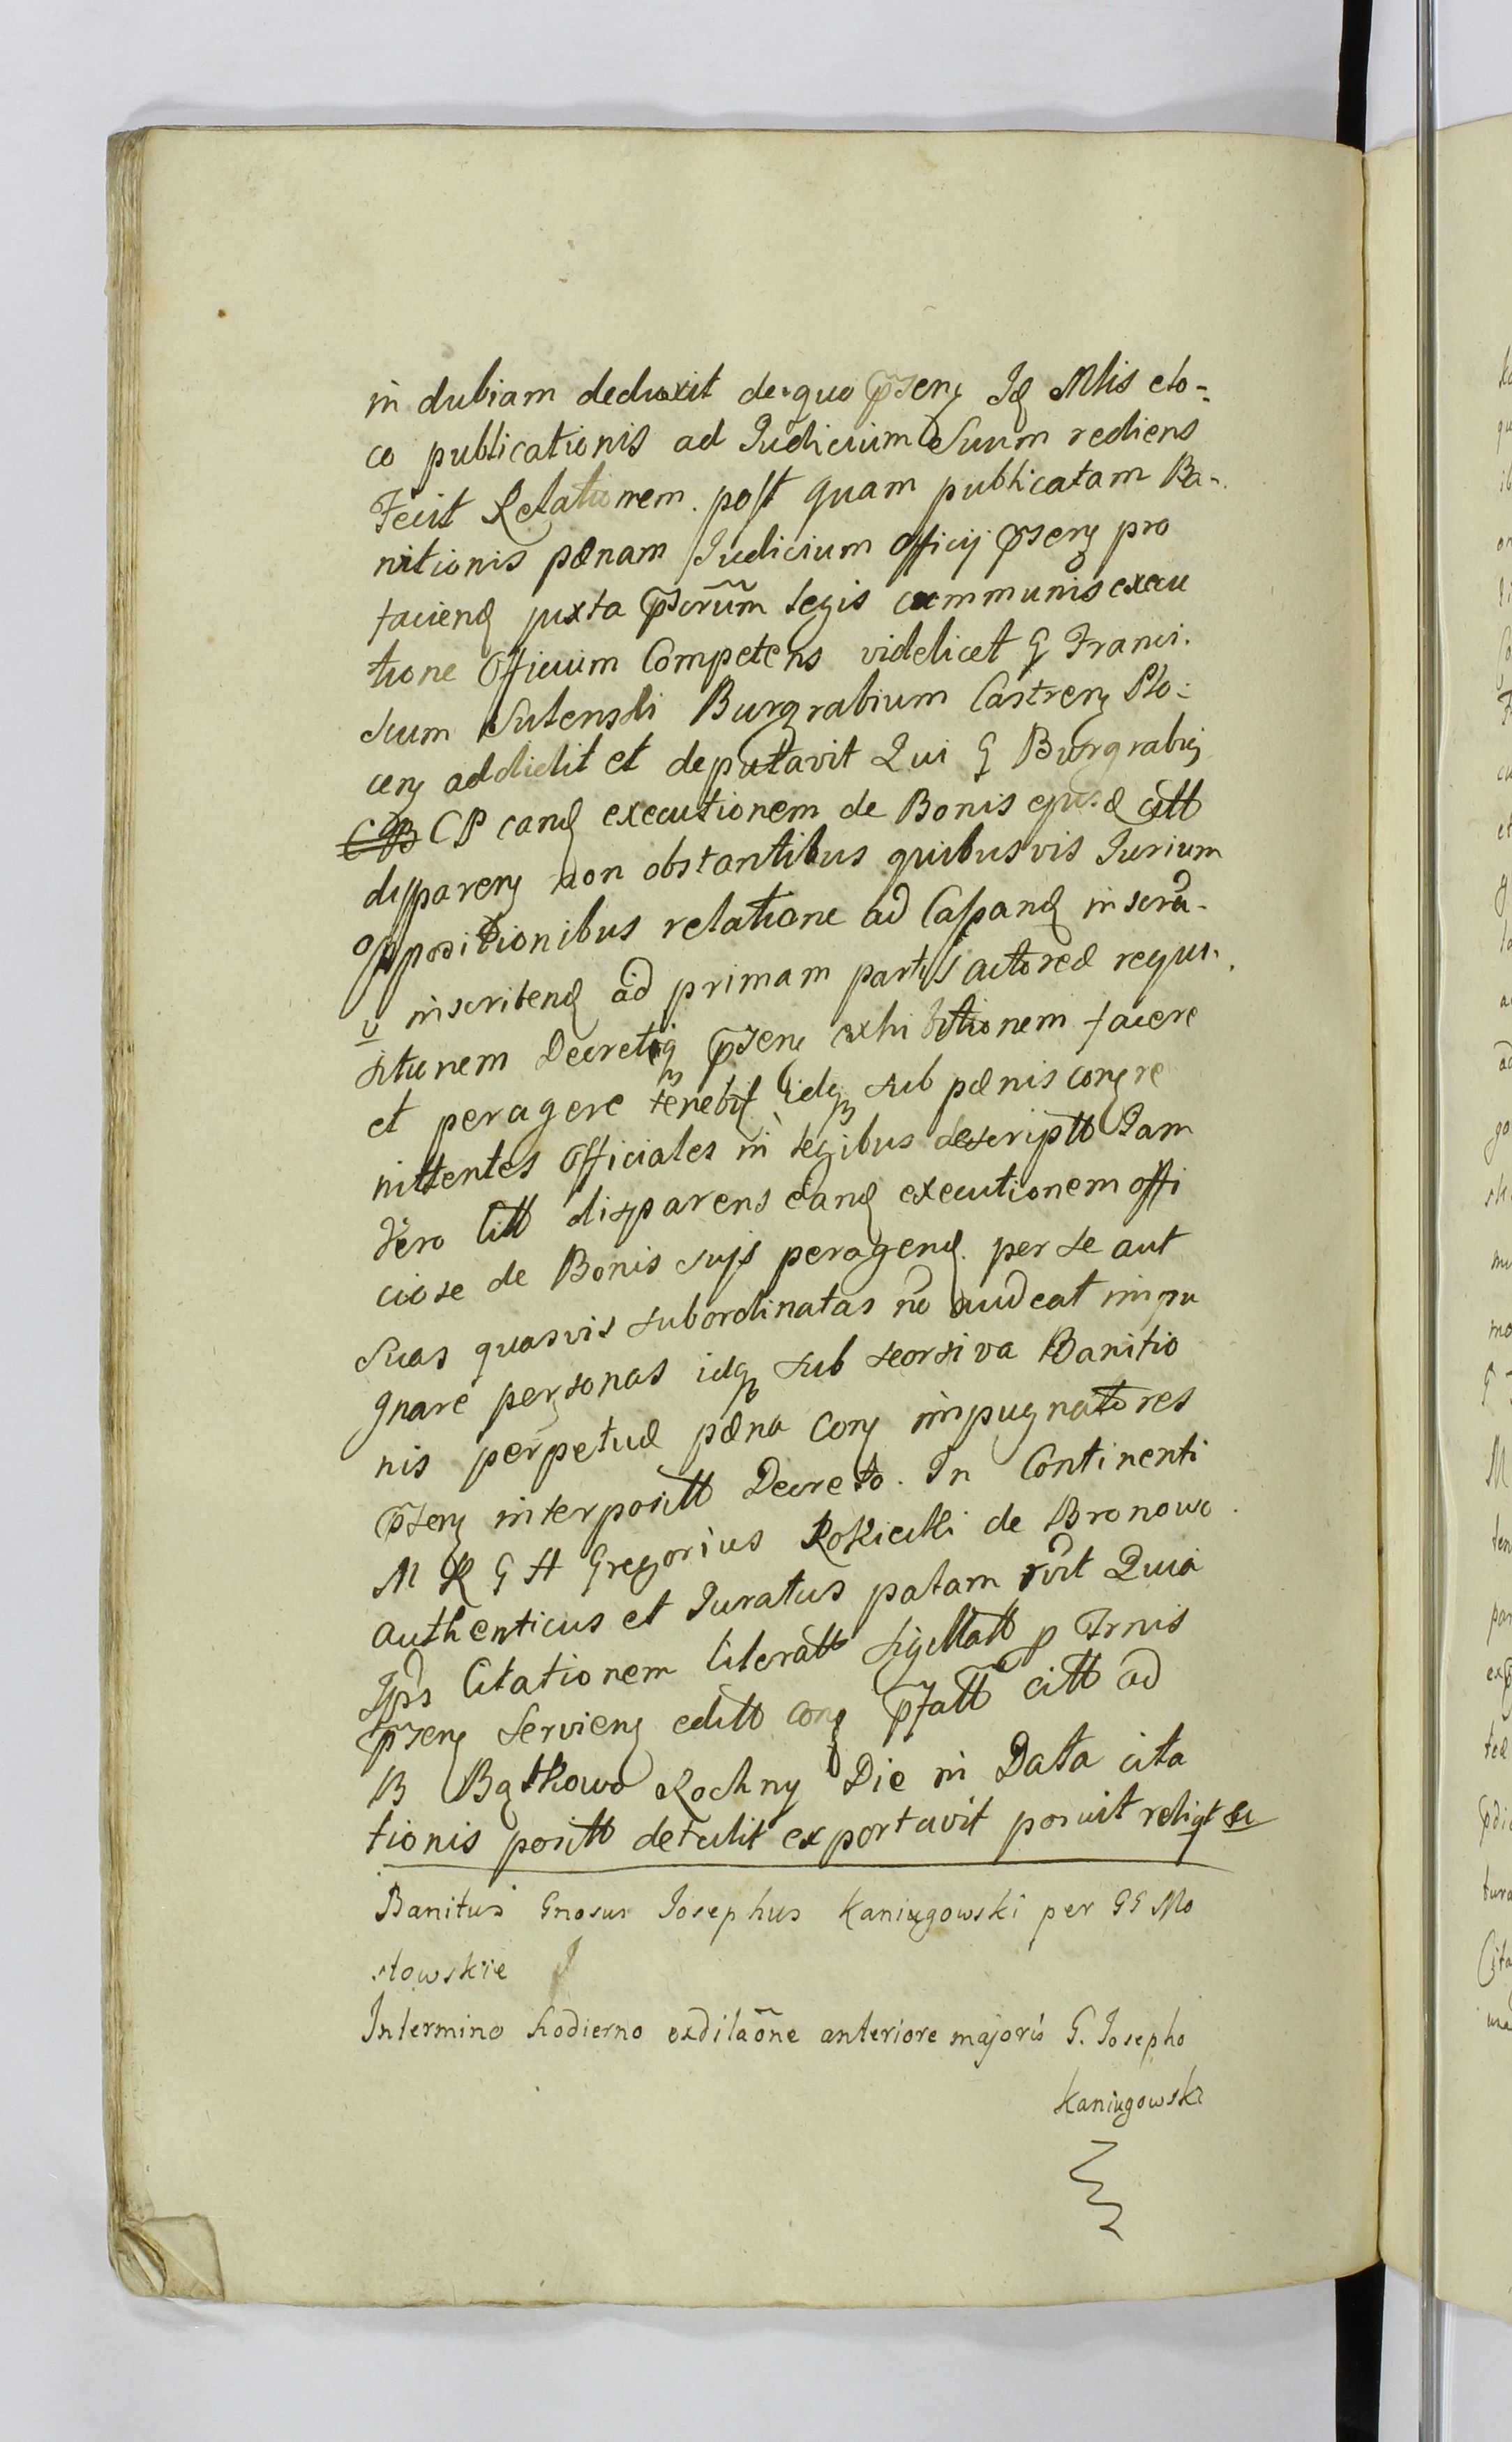 in dubiam deduxit de quo pñsens Id Mlis elo-
co publicationis ad Judicium Suum rediens
Fecit Relationem. post quam publicatam Ba-
nitionis pænam Judicium officij pñsens pro
faciend juxta pscrũm legis communis execu
tione Officium Competens videlicet G Franci.
scum Sulenski Burgrabium Castrens Plo-
cens addidit et deputavit Qui G Burgrabiꝯ
CP cand executionem de Bonis ejusd citt
disparens non obstantibus quibusvis Jurium
oppositionibus relatione ad Capand
inscribend ad primam partis actoreæ requi-
sitionem Decretiq pñsens exhibitionem facere
et peragere tenebit idq sub pænis cong re
nittentes Officiales in legibus descriptt Jam
Vero Citt disparens eand executionem offi
ciose de Bonis suis peragend. per se aut
Suas quasvis subordinatas nõ audeat impu
gnare personas idq sub seorsiva Banitio
nis perpetuæ pæna cong impugnatores
pñsens interpositt Decreto. In Continenti
M R G H Gregorius Rokicki de Bronowo
authenticus et Juratus palam rõit Quia
Ips Citationem literatt sigillatt p Trnis
pñsens serviens editt cong pfatt citt ad
B Bątkowo Rochny Die in Data cita
tionis positt detulit exportavit posuit reliqt &
Banitus Gnosus Josephus Kaniugowski per GG Mo
stowskie
Intermino hodierno exdilaõne anteriore majoris G. Josepho
Kaniugowski